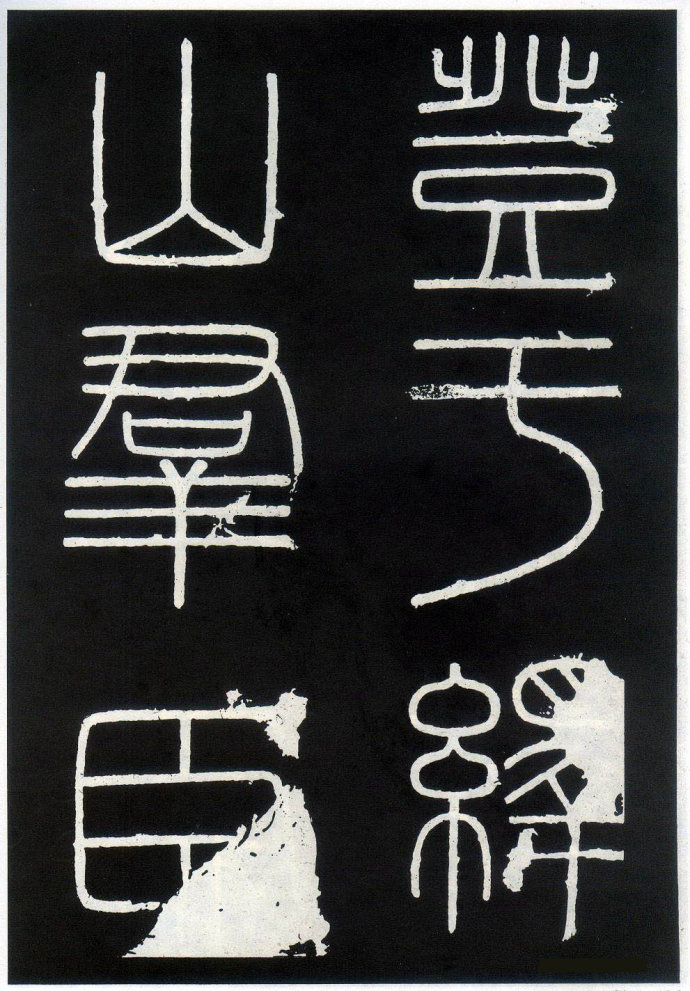 登于繹
山羣臣